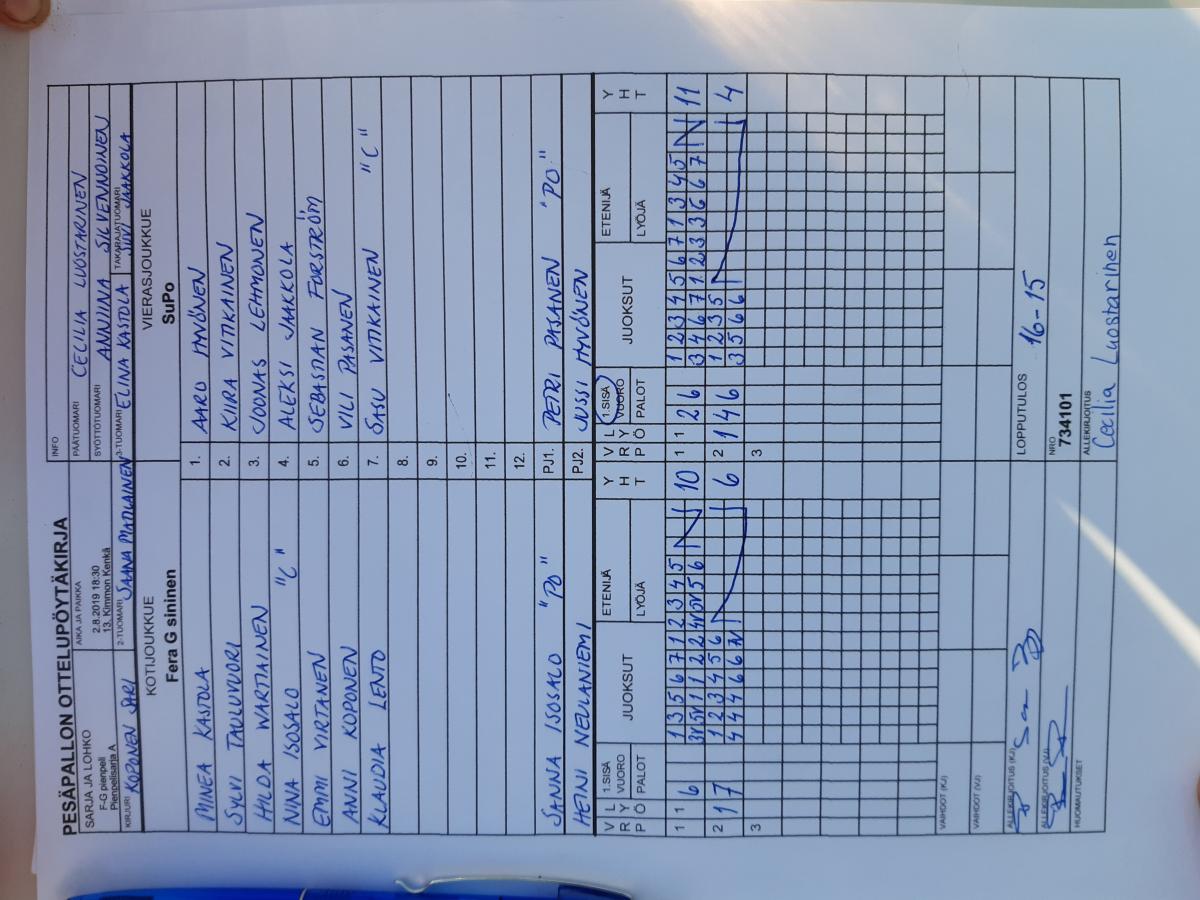 PESÄPALLON OTTELUPÖYTÄKIRJA
SARJA JA LOHKO
F-G pienpeli
Pienpelisarja A
AIKA JA PAIKKA
2.8.2019 18:30
13. Kimmon Kenkä
INFO
PÄÄTUOMARI CECILIA LUOSTARINEN
SYÖTTÖTUOMARI ANNIINA SILVENNOINEN
KIRJURI KOPONEN SARI 2-TUOMARI SAANA 3-TUOMARI ELINA KASTOLA TAKARAJATUOMARI SUVI JAAKKOLA
KOTIJOUKKUE VIERASJOUKKUE
Fera G sininen SuPo
MINEA KASTOLA 1. AARO HYVÖNEN
SYLVI TAULUVUORI 2. KIIRA VITIKAINEN
HILDA WARTIAINEN 3. JOONAS LEHMONEN
NINA ISOSALO "C" 4. ALEKSI JAAKKOLA
EMMI VIRTANEN 5. SEBASTIAN FORSTRÖM
ANNI KOPONEN 6. VILI PASANEN
KLAUDIA LENTO 7. SASU VITIKAINEN "C"
8.
9.
10.
11.
12.
SANNA ISOSALO "PO" PJ1. PETRI PASANEN "PO"
HEINI NEULANIEMI PJ2. JUSSI HYVÖNEN
V L 1.SISÄ ETENIJÄ Y V L 1.SISÄ ETENIJÄ Y
R Y VUORO JUOKSUT H R Y VUORO JUOKSUT H
P Ö PALOT LYÖJÄ T P Ö PALOT LYÖJÄ T
1 1 6 1 3 5 6 7 1 2 3 4 5 10 1 1 2 6 1 2 3 4 5 6 7 1 3 4 5 11
3V 5V 1 1 2 2 4V 5V 5 6 3 4 6 7 1 2 3 3 6 6 7
2 1 7 1 2 3 4 5 6 6 2 1 4 6 1 2 3 5 4
4 4 4 6 6 7V 3 5 6 6
3 3
VAIHDOT (KJ)
VAIHDOT (VJ)
LOPPUTULOS 16-15
ALLEKIRJOITUS (KJ)
ALLEKIRJOITUS (VJ)
NRO
734101
HUOMAUTUKSET
ALLEKIRJOITUS
Cecilia Luostarinen